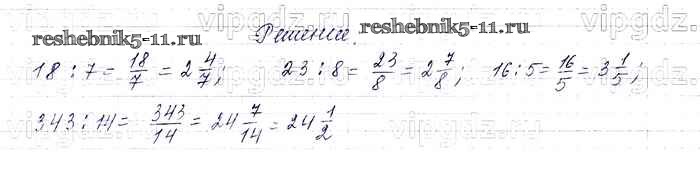 vipgdz.ru vipgdz.ru vipgdz.ru
reshebnik5-11.ru Решение. reshebnik5-11.ru
18 : 7 = 18/7 = 2 4/7; 23 : 8 = 23/8 = 2 7/8; 16 : 5 = 16/5 = 3 1/5;
343 : 14 = 343/14 = 24 7/14 = 24 1/2
vipgdz.ru vipgdz.ru vipgdz.ru